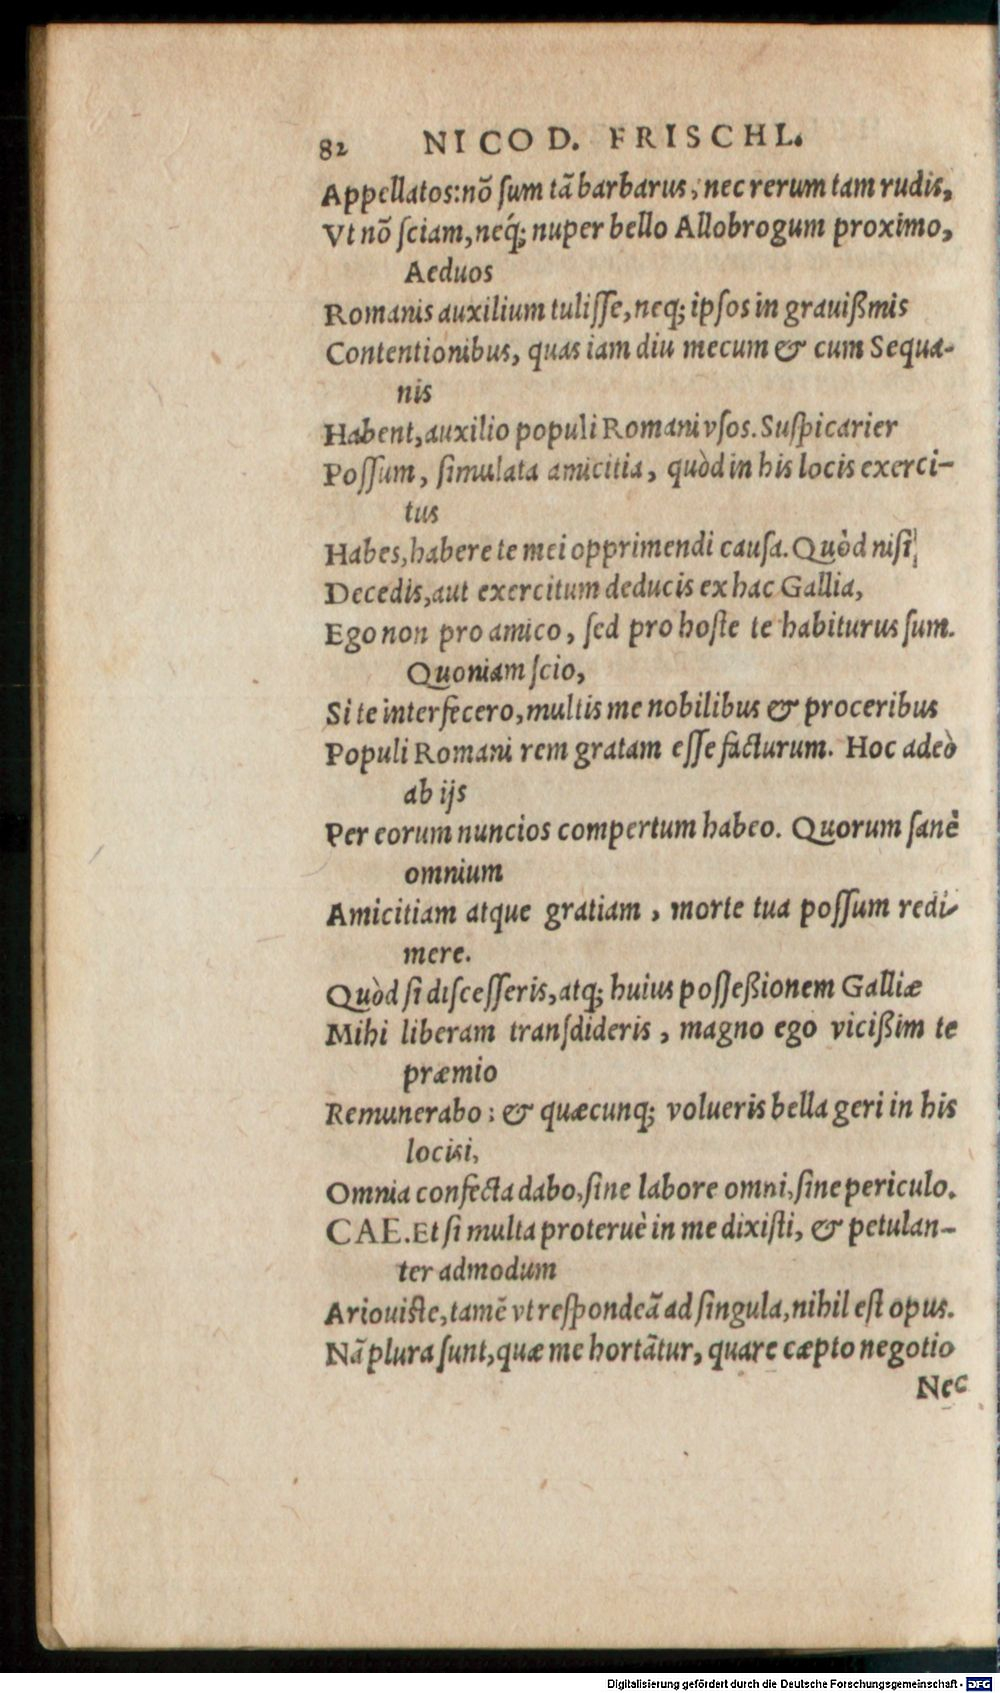 82 NICOD. FRISCHL.
Appellatos: nō ſum tā barbarus, nec rerum tam rudis,
Vt nō ſciam, neq́; nuper bello Allobrogum proximo,
Aeduos
Romanis auxilium tuliſſe, neq; ipſos in grauißmis
Contentionibus, quas iam diu mecum & cum Sequa-
nis
Habent, auxilio populi Romani vſos. Suſpicarier
Poſſum, ſimulata amicitia, quòd in his locis exerci-
tus
Habes, habere te mei opprimendi cauſa. Quòd niſi
Decedis, aut exercitum deducis ex hac Gallia,
Ego non pro amico, ſed pro hoſte te habiturus ſum.
Quoniam ſcio,
Si te interfecero, multis me nobilibus & proceribus
Populi Romani rem gratam eſſe facturum. Hoc adeò
ab ijs
Per eorum nuncios compertum habeo. Quorum ſanè
omnium
Amicitiam atque gratiam, morte tua poſſum redi-
mere.
Quòd ſi diſceſſeris, atq; huius poſſeßionem Galliæ
Mihi liberam tranſdideris, magno ego vicißim te
præmio
Remunerabo: & quæcunq; volueris bella geri in his
locisi,
Omnia confecta dabo, ſine labore omni, ſine periculo.
CAE. Et ſi multa proteruè in me dixiſti, & petulan-
ter admodum
Ariouiſte, tamē vt reſpondeā ad ſingula, nihil eſt opus.
Nā plura ſunt, quæ me hortātur, quare cæpto negotio
Nec
Digitalisierung gefördert durch die Deutsche Forschungsgemeinschaft - DFG